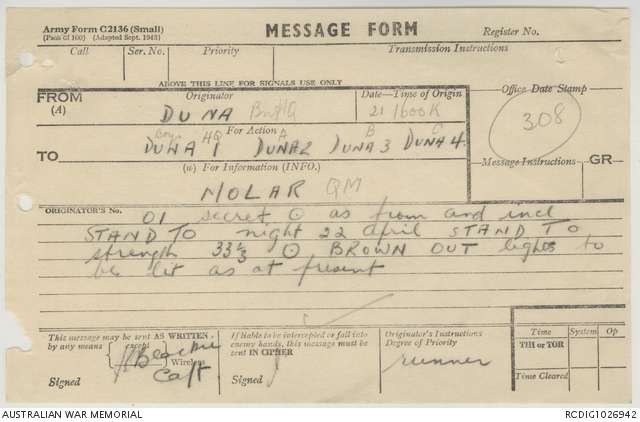 Army Form C2136 (Small)
(Pads of 100) (Adapted Sept. 1943)
MESSAGE FORM
Register No.
Call
Ser. No.
Priority
Transmission Instructions
ABOVE THIS LINE FOR SIGNALS USE ONLY
FROM
(A)
Originator
DUNA Bn HQ
Date—Time of Origin
21 1600K
Office Date Stamp
308
For Action
TO
HQ A B
DUNA 1 DUNA 2 DUNA 3 DUNA 4
(w) For Information (INFO.)
MOLAR QM
Message Instructions
GR
ORIGINATOR'S No.
01 secret ⊙ as from and incl
STAND TO night 22 April STAND TO
strength 33⅓ ⊙ BROWN OUT lights to
be lit as at present
This message may be sent AS WRITTEN
by any means except
Wireless
Signed
Capt
If liable to be intercepted or fall into
enemy hands, this message must be
sent IN CIPHER
Signed
Originator's Instructions
Degree of Priority
runner
Time
System
Op
THI or TOR
Time Cleared
AUSTRALIAN WAR MEMORIAL
RCDIG1026942